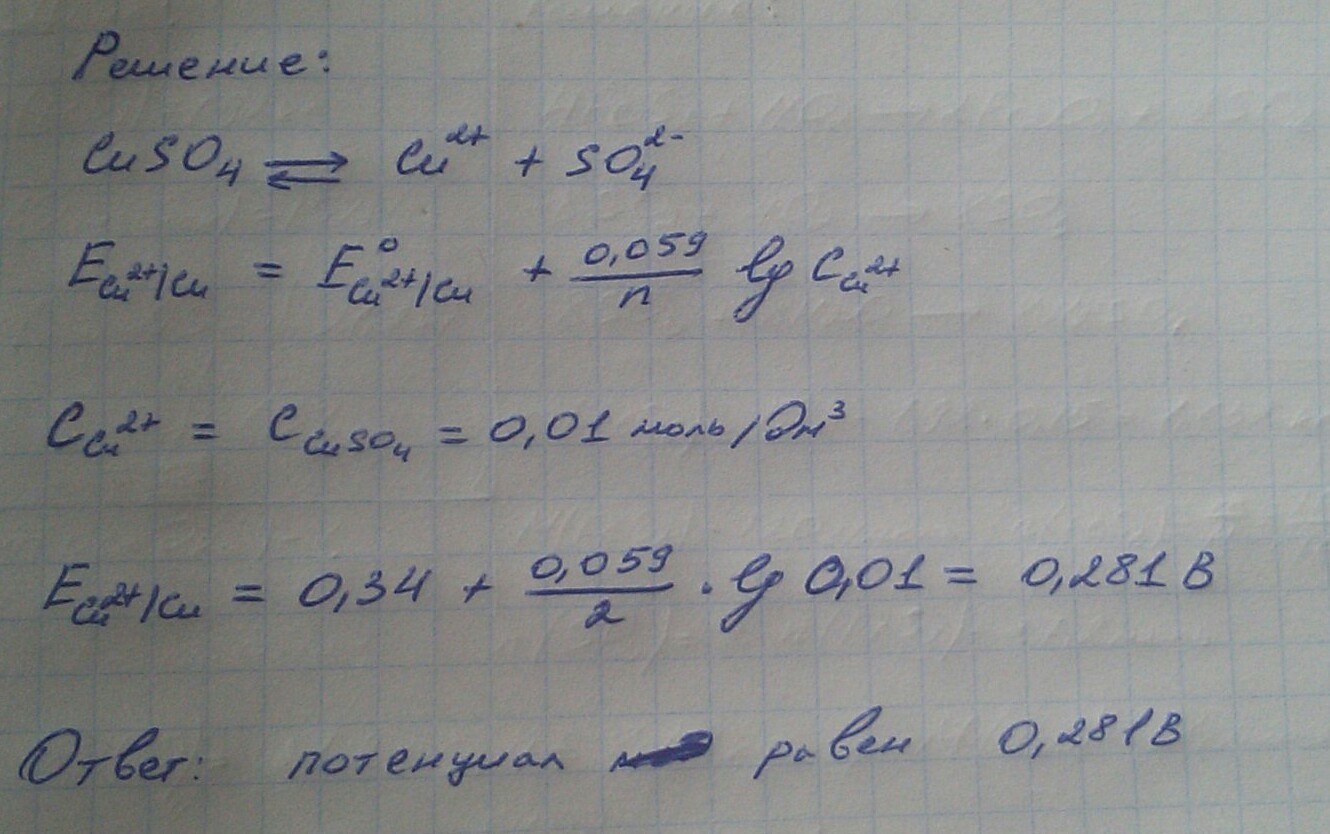 Решение:
CuSO₄ ⇄ Cu²⁺ + SO₄²⁻
E Cu²⁺/Cu = E⁰ Cu²⁺/Cu + 0,059/n lg C Cu²⁺
C Cu²⁺ = C CuSO₄ = 0,01 моль/дм³
E Cu²⁺/Cu = 0,34 + 0,059/2 · lg 0,01 = 0,281 В
Ответ: потенциал равен 0,281В